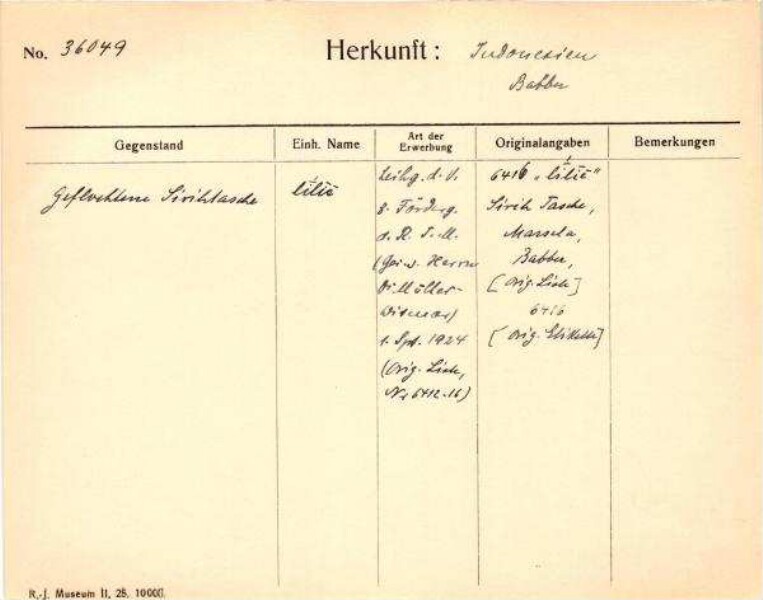 No. 36049 Herkunft: Indonesien
Babber
Gegenstand Einh. Name Art der Erwerbung Originalangaben Bemerkungen
Geflochtene Sirihtasche
lilië
Leihg. d. V.
z. Förderg.
d. R. J. M.
Herrn
Dr. Müller-
Wismar)
1. Spt. 1924
(Orig. Liste,
Nr 6412-16)
6416 "lilië"
Sirih Tasche,
Marsela,
Babber,
[Orig. Liste]
6416
[Orig. Etikette]
R.-J. Museum II, 25, 10000.